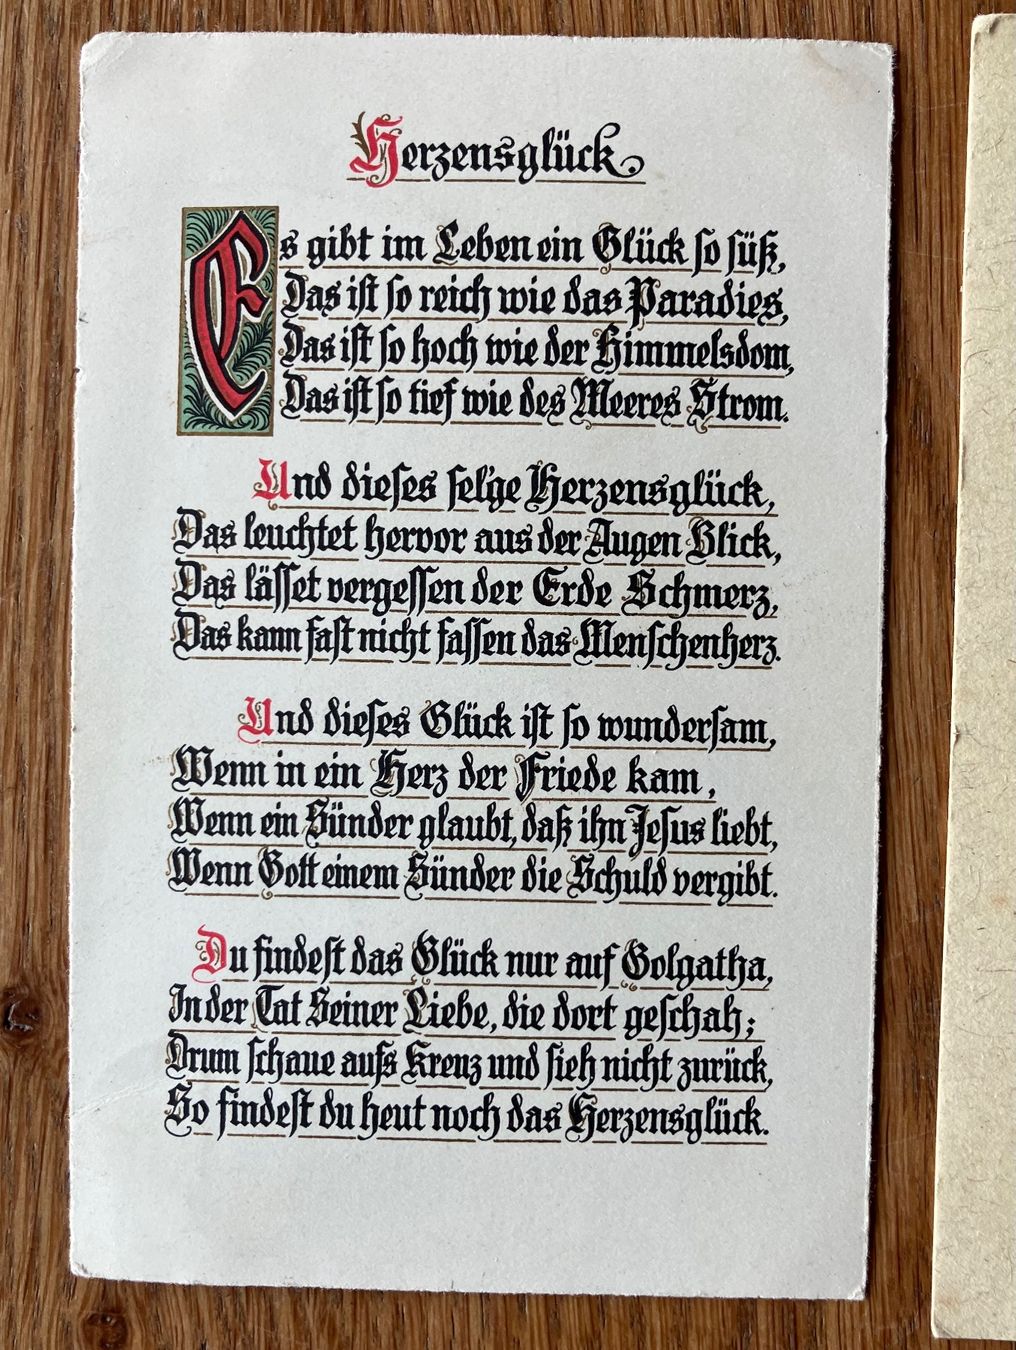 Herzensglück.
Es gibt im Leben ein Glück so süß,
Das ist so reich wie das Paradies,
Das ist so hoch wie der Himmelsdom,
Das ist so tief wie des Meeres Strom.
Und dieses sel'ge Herzensglück,
Das leuchtet hervor aus der Augen Blick,
Das lässet vergessen der Erde Schmerz,
Das kann fast nicht fassen das Menschenherz.
Und dieses Glück ist so wundersam,
Wenn in ein Herz der Friede kam,
Wenn ein Sünder glaubt, daß ihn Jesus liebt,
Wenn Gott einem Sünder die Schuld vergibt.
Du findest das Glück nur auf Golgatha,
In der Tat Seiner Liebe, die dort geschah;
Drum schaue aufs Kreuz und sieh nicht zurück,
So findest du heut noch das Herzensglück.